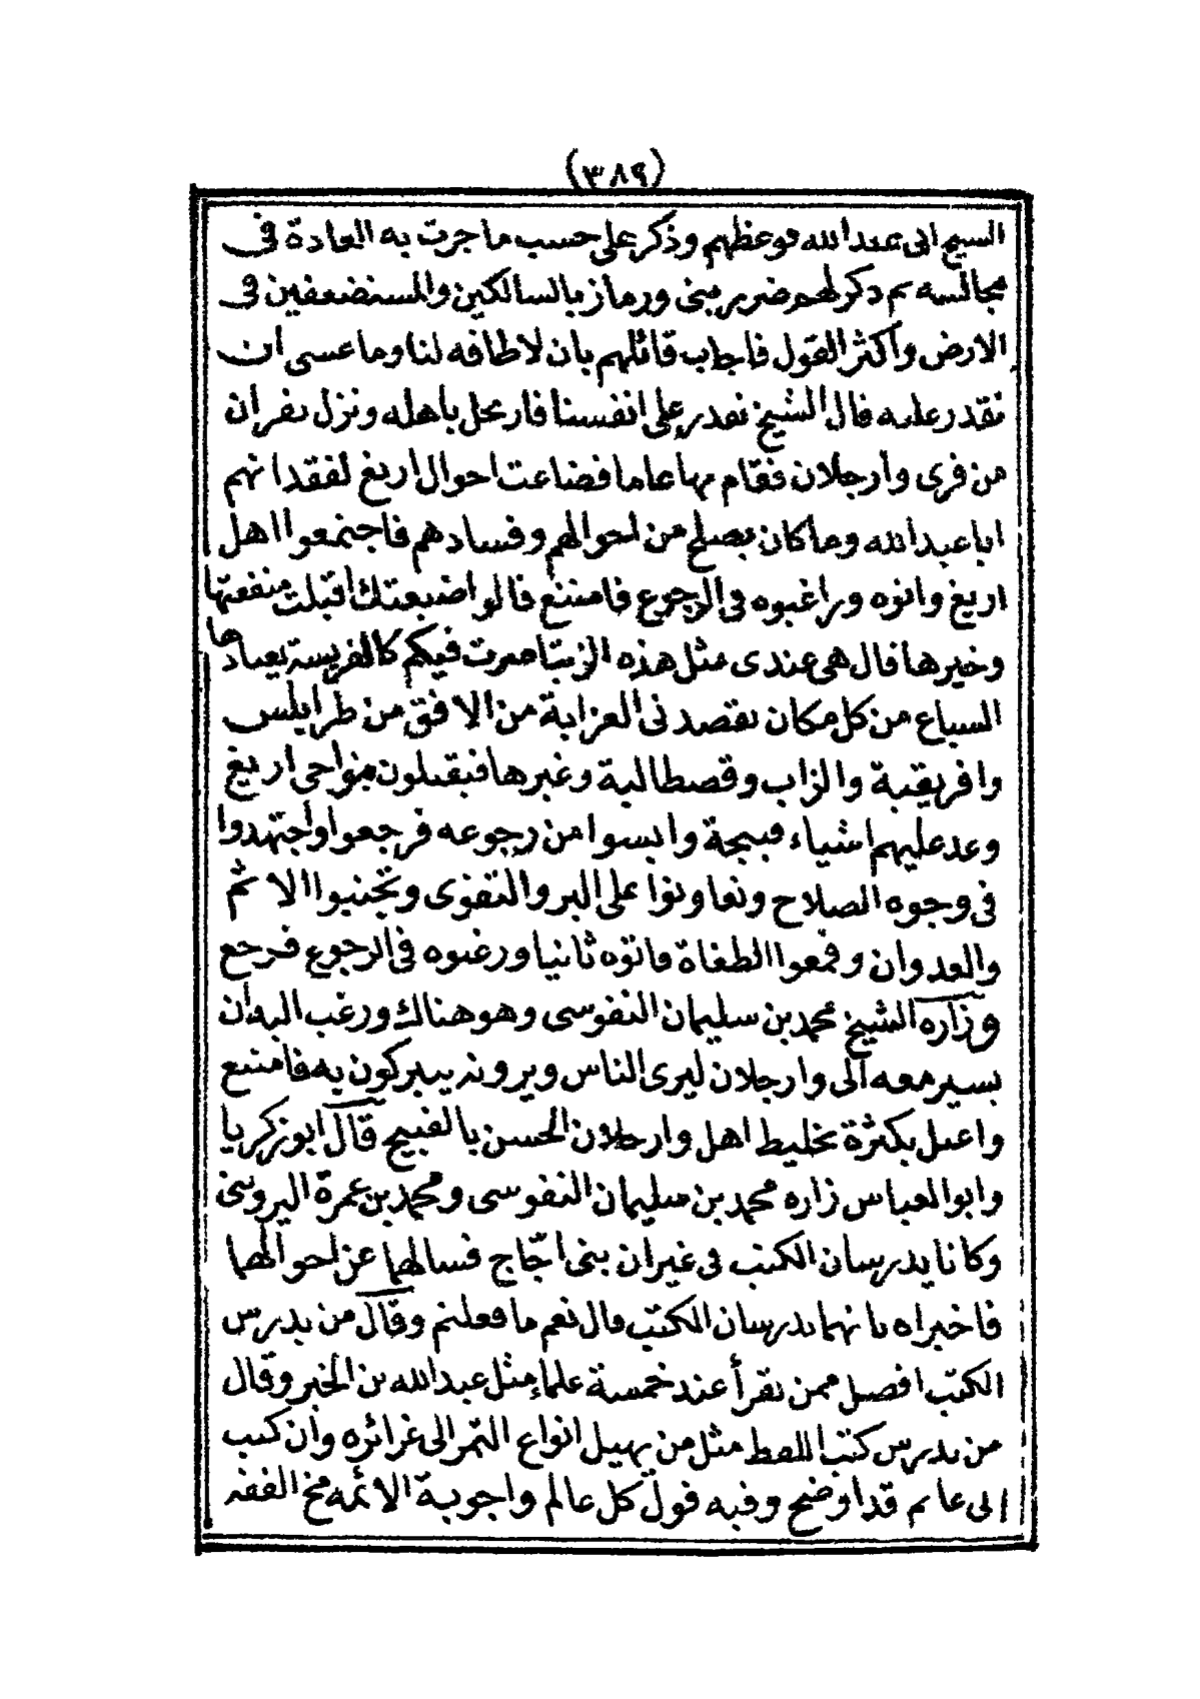 (٣٨٩)
الشيخ ابى عبد الله فوعظهم وذكر على حسب ما جرت به العادة فى
مجالسه ثم ذكر لهم ضرر بنى ورماز بالسالكين والمستضعفين فى
الارض واكثر القول فاجاب قائلهم بان لا طاقه لنا وما عسى ان
نقدر عليه قال الشيخ نقدر على انفسنا فارتحل باهله ونزل تفران
من قرى وارجلان فقام بها عاما فضاعت احوال اريغ لفقدانهم
ابا عبد الله وما كان يصلح من احوالهم وفسادهم فاجتمعوا اهل
اريغ واتوه وراغبوه فى الرجوع فامتنع قالوا ضيعتك اقبلت منفعتها
وخيرها قال هى عندى مثل هذه الزيتا صرت فيكم كالفريسة يعتادها
السباع من كل مكان يقصدنى العزابة من الافق من طرابلس
وافريقية والزاب وقصطالية وغيرها فيقبلون بنواحى اريغ
وعد عليهم اشياء قبيحة وايسوا من رجوعه فرجعوا واجتهدوا
فى وجوه الصلاح وتعاونوا على البر والتقوى وتجنبوا الاثم
والعدوان وقمعوا الطغاة فاتوه ثانيا ورغبوه فى الرجوع فرجع
وزاره الشيخ محمد بن سليمان النفوسى وهو هناك ورغب اليه ان
يسير معه الى وارجلان ليرى الناس ويرونه يتبركون به فامتنع
واعتل بكثرة تخليط اهل وارجلان الحسن بالقبيح قال ابو زكريا
وابو العباس زاره محمد بن سليمان النفوسى ومحمد بن عمرة اليروتنى
وكانا يدرسان الكتب فى غيران بنى اجّاج فسالهما عن احوالهما
فاخبراه بانهما يدرسان الكتب قال نعم ما فعلتم وقال من يدرس
الكتب افضل ممن يقرأ عند خمسة علماء مثل عبد الله بن الخير وقال
من يدرس كتب اللقط مثل من يهيل انواع التمر الى غرائزه وان كتب
الى عانم قد اوضح وفيه قول كل عالم واجوبة الائمه مخ الفقه